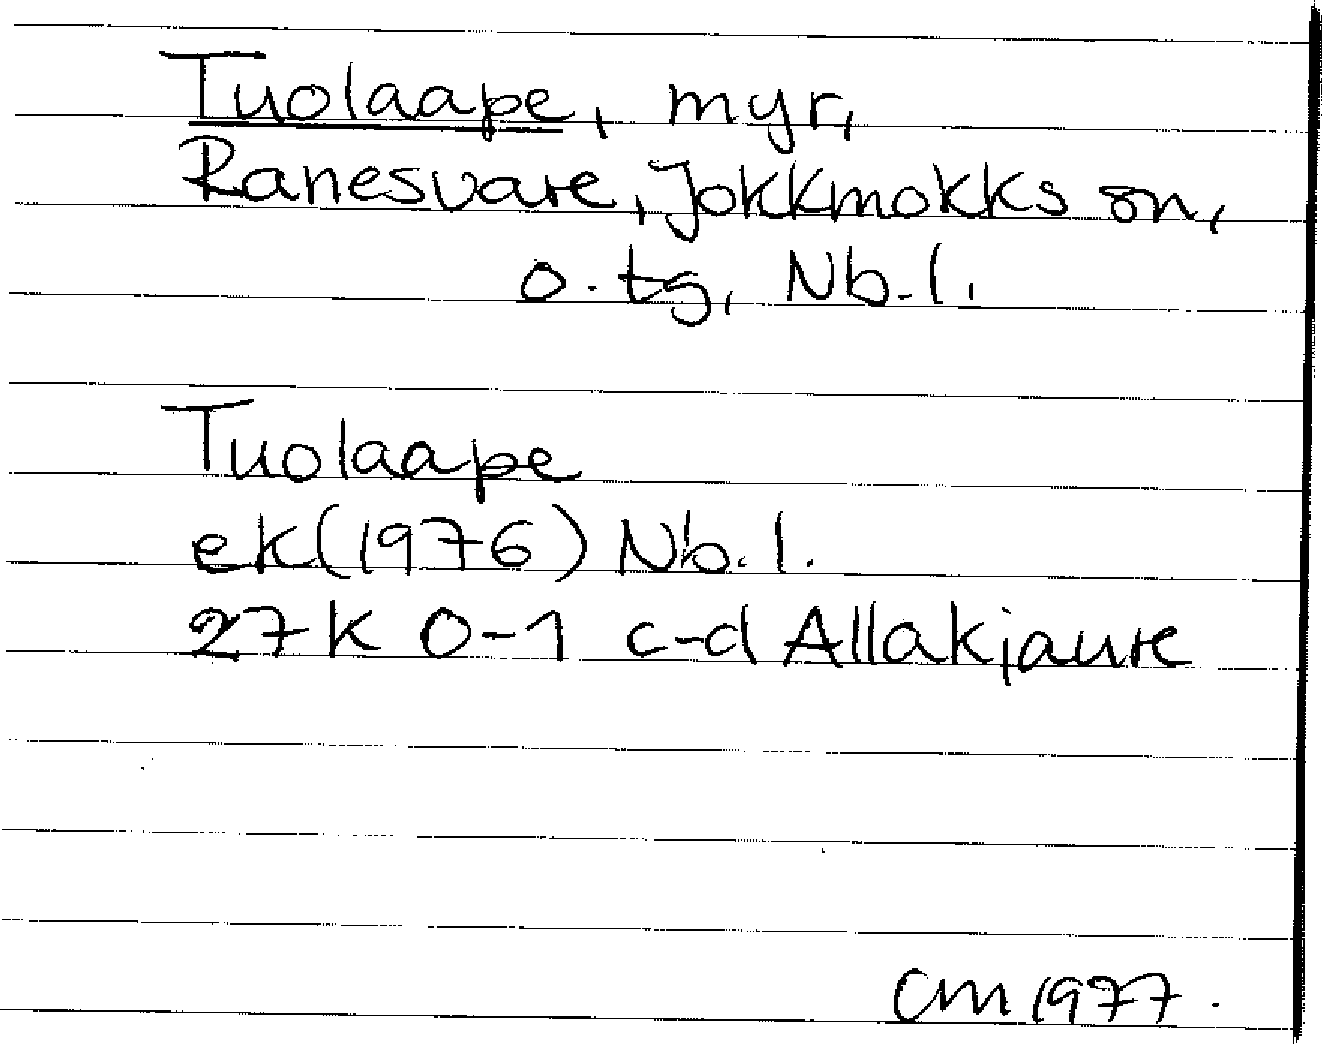 Tuolaape, myr,
Ranesvare, Jokkmokks sn,
o. tg, Nb. l.
Tuolaape
ek (1976) Nb. l.
27K 0-1 c-d Allakjaure
CM 1977.